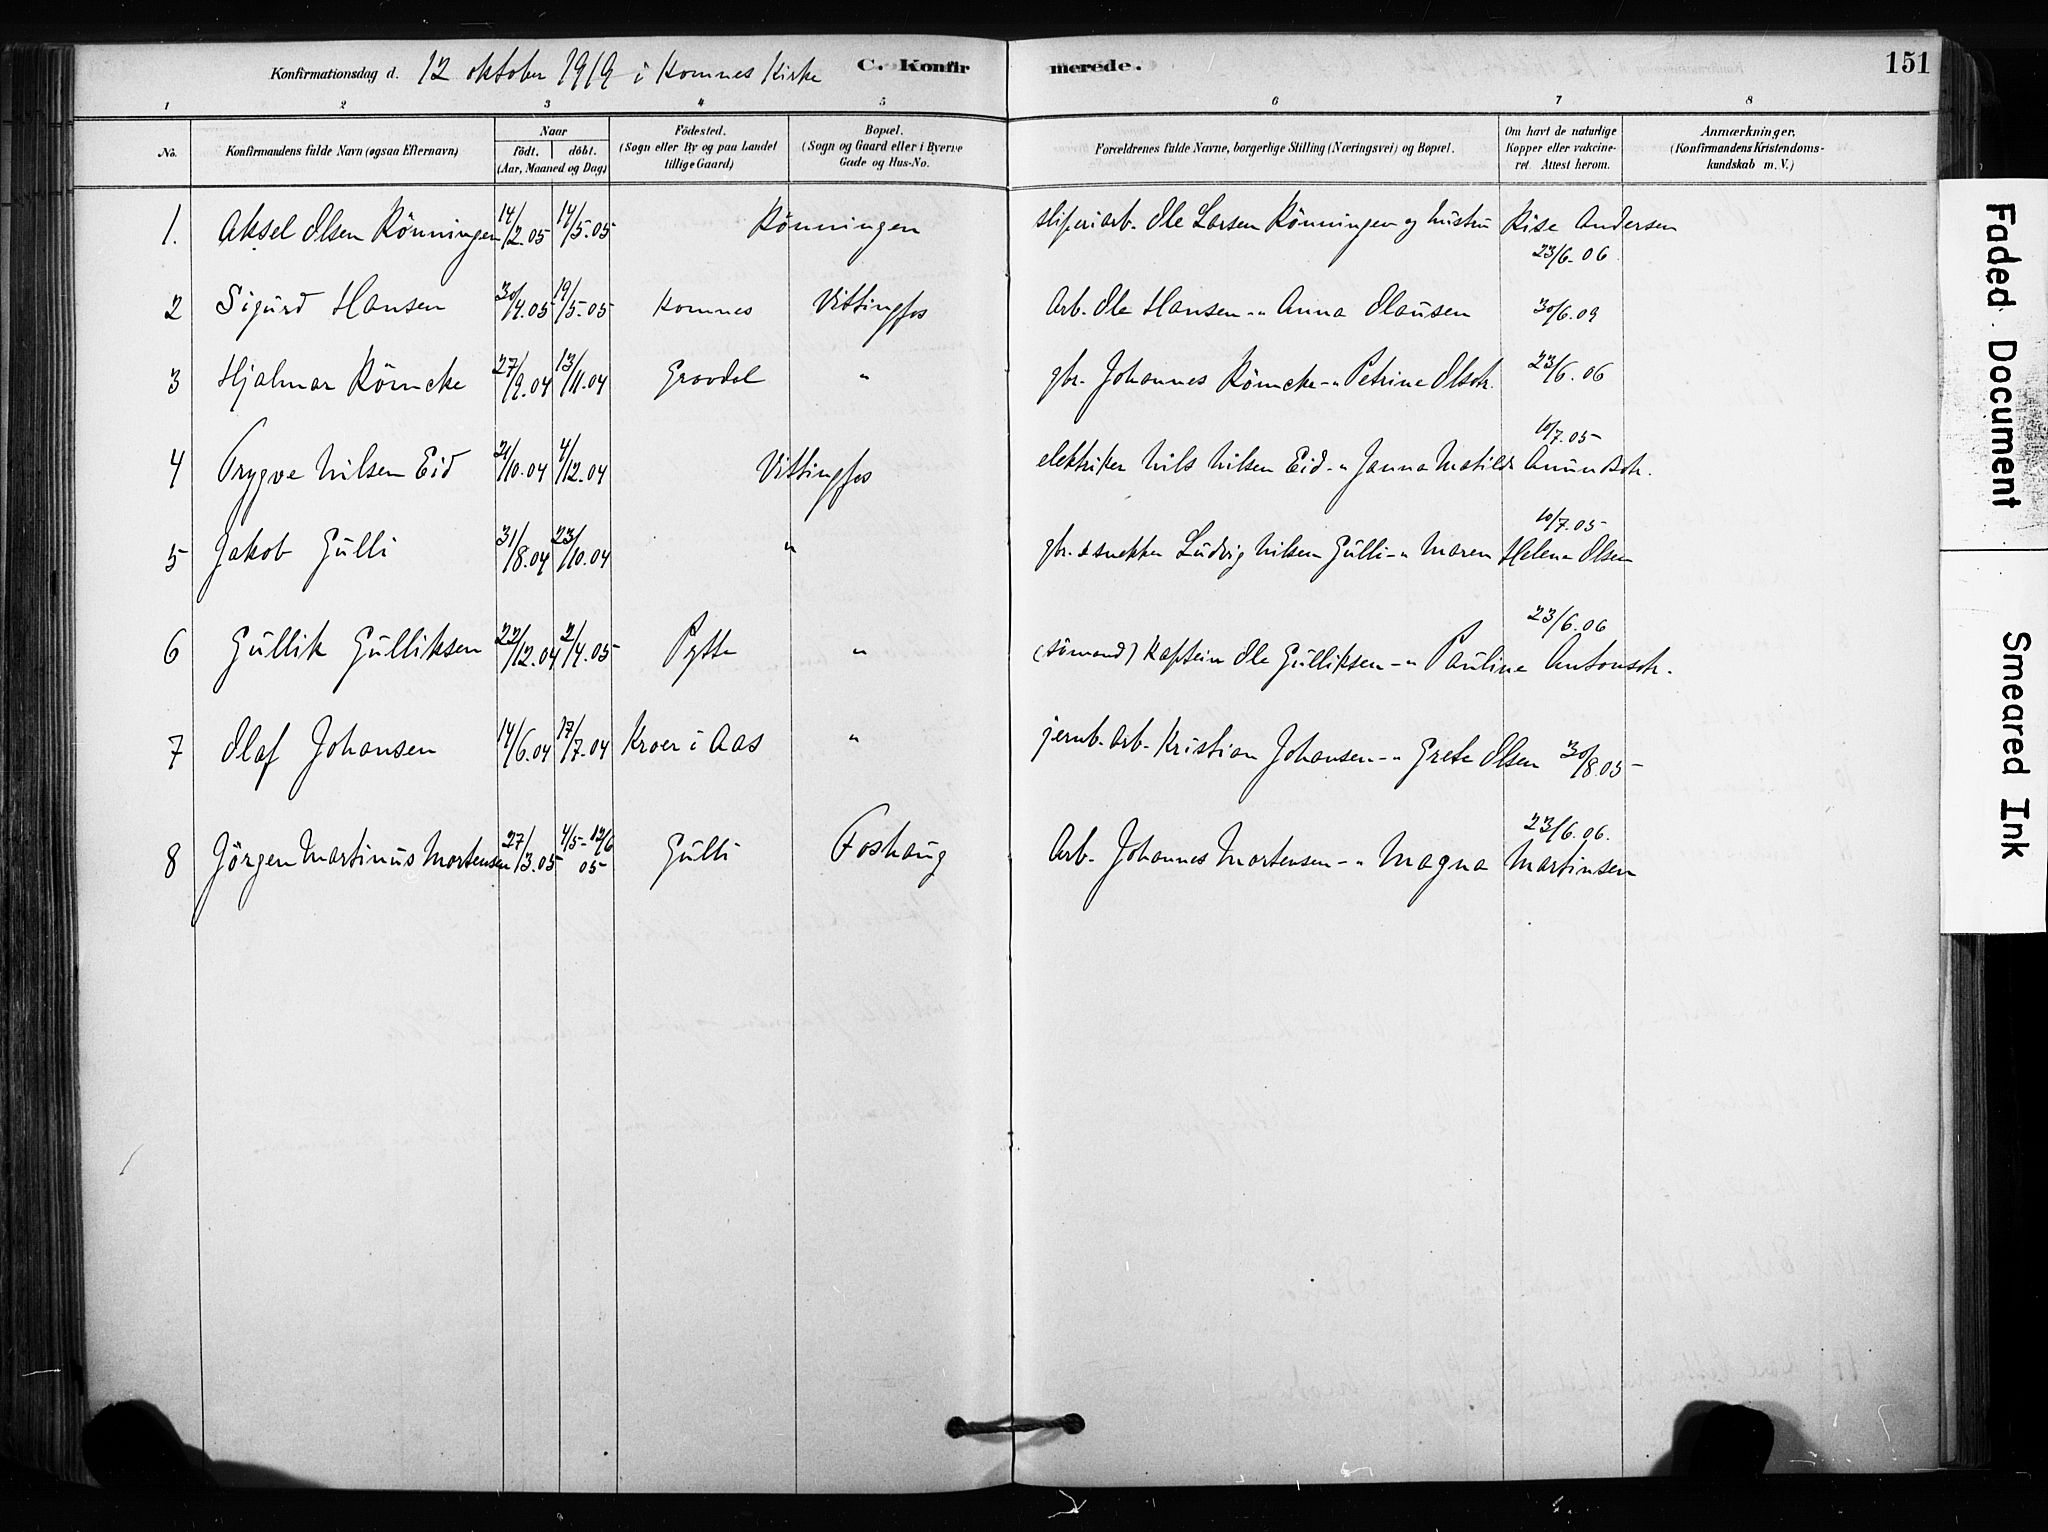 Konfirmationsdag d. 12 oktober 1919 i Komnes Kirke C. Konfirmerede. 151
1 2 3 4 5 6 7 8
No. Konfirmandens fulde Navn (ogsaa Efternavn) Naar födt. döbt. (Aar, Maaned og Dag) Födested. (Sogn eller By og paa Landet tillige Gaard) Bopæl. (Sogn og Gaard eller i Byerne Gade og Hus-No. Forældrenes fulde Navne, borgerlige Stilling (Næringsvei) og Bopæl. Om havt de naturlige Kopper eller vakcineret. Attest herom. Anmærkninger. (Konfirmandens Kristendomskundskab m. V.)
1. Aksel Olsen Rönningen 14/2.05 14/5.05 Rönningen sliperiarb. Ole Larsen Rönningen og hustru Rise Andersen 23/6.06
2 Sigurd Hansen 30/4.05 19/5.05 Komnes Vittingfos Arb. Ole Hansen -" Anna Olausen 30/6.09
3 Hjalmar Römcke 27/9.04 13/11.04 Gravdal " gbr. Johannes Römcke -" Petrine Olsdtr. 23/6.06
4 Trygve Nilsen Eid 21/10.04 4/12.04 Vittingfos elektriker Nils Nilsen Eid -" Janna Matilde Amundsdtr. 10/7.05
5 Jakob Gulli 31/8.04 23/10.04 " gbr. & snekker Ludvig Nilsen Gulli -" Maren Helene Olsen 10/7.05
6 Gullik Gulliksen 22/12.04 2/4.05 Pytte " (sömand) Kaptein Ole Gulliksen -" Pauline Antonsdtr. 23/6.06
7 Olaf Johansen 14/6.04 17/7.04 Kroer i Aas " jernb. arb. Kristian Johansen -" Grete Olsen 30/8.05
8 Jörgen Martinus Mortensen 27/3.05 4/5-12/6 05 Gulli Foshaug Arb. Johannes Mortensen -" Magna Martinsen 23/6.06.
Faded Document
Smeared Ink